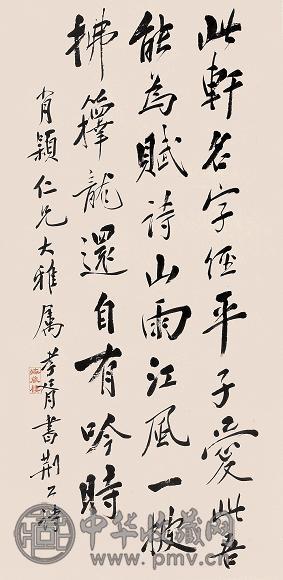 此軒名字經平子愛此吾
能為賦詩山雨江風一披
拂籜龍還自有吟時
肖穎仁兄大雅屬 孝胥書荊公詩
中华收藏网
www.pmv.cn